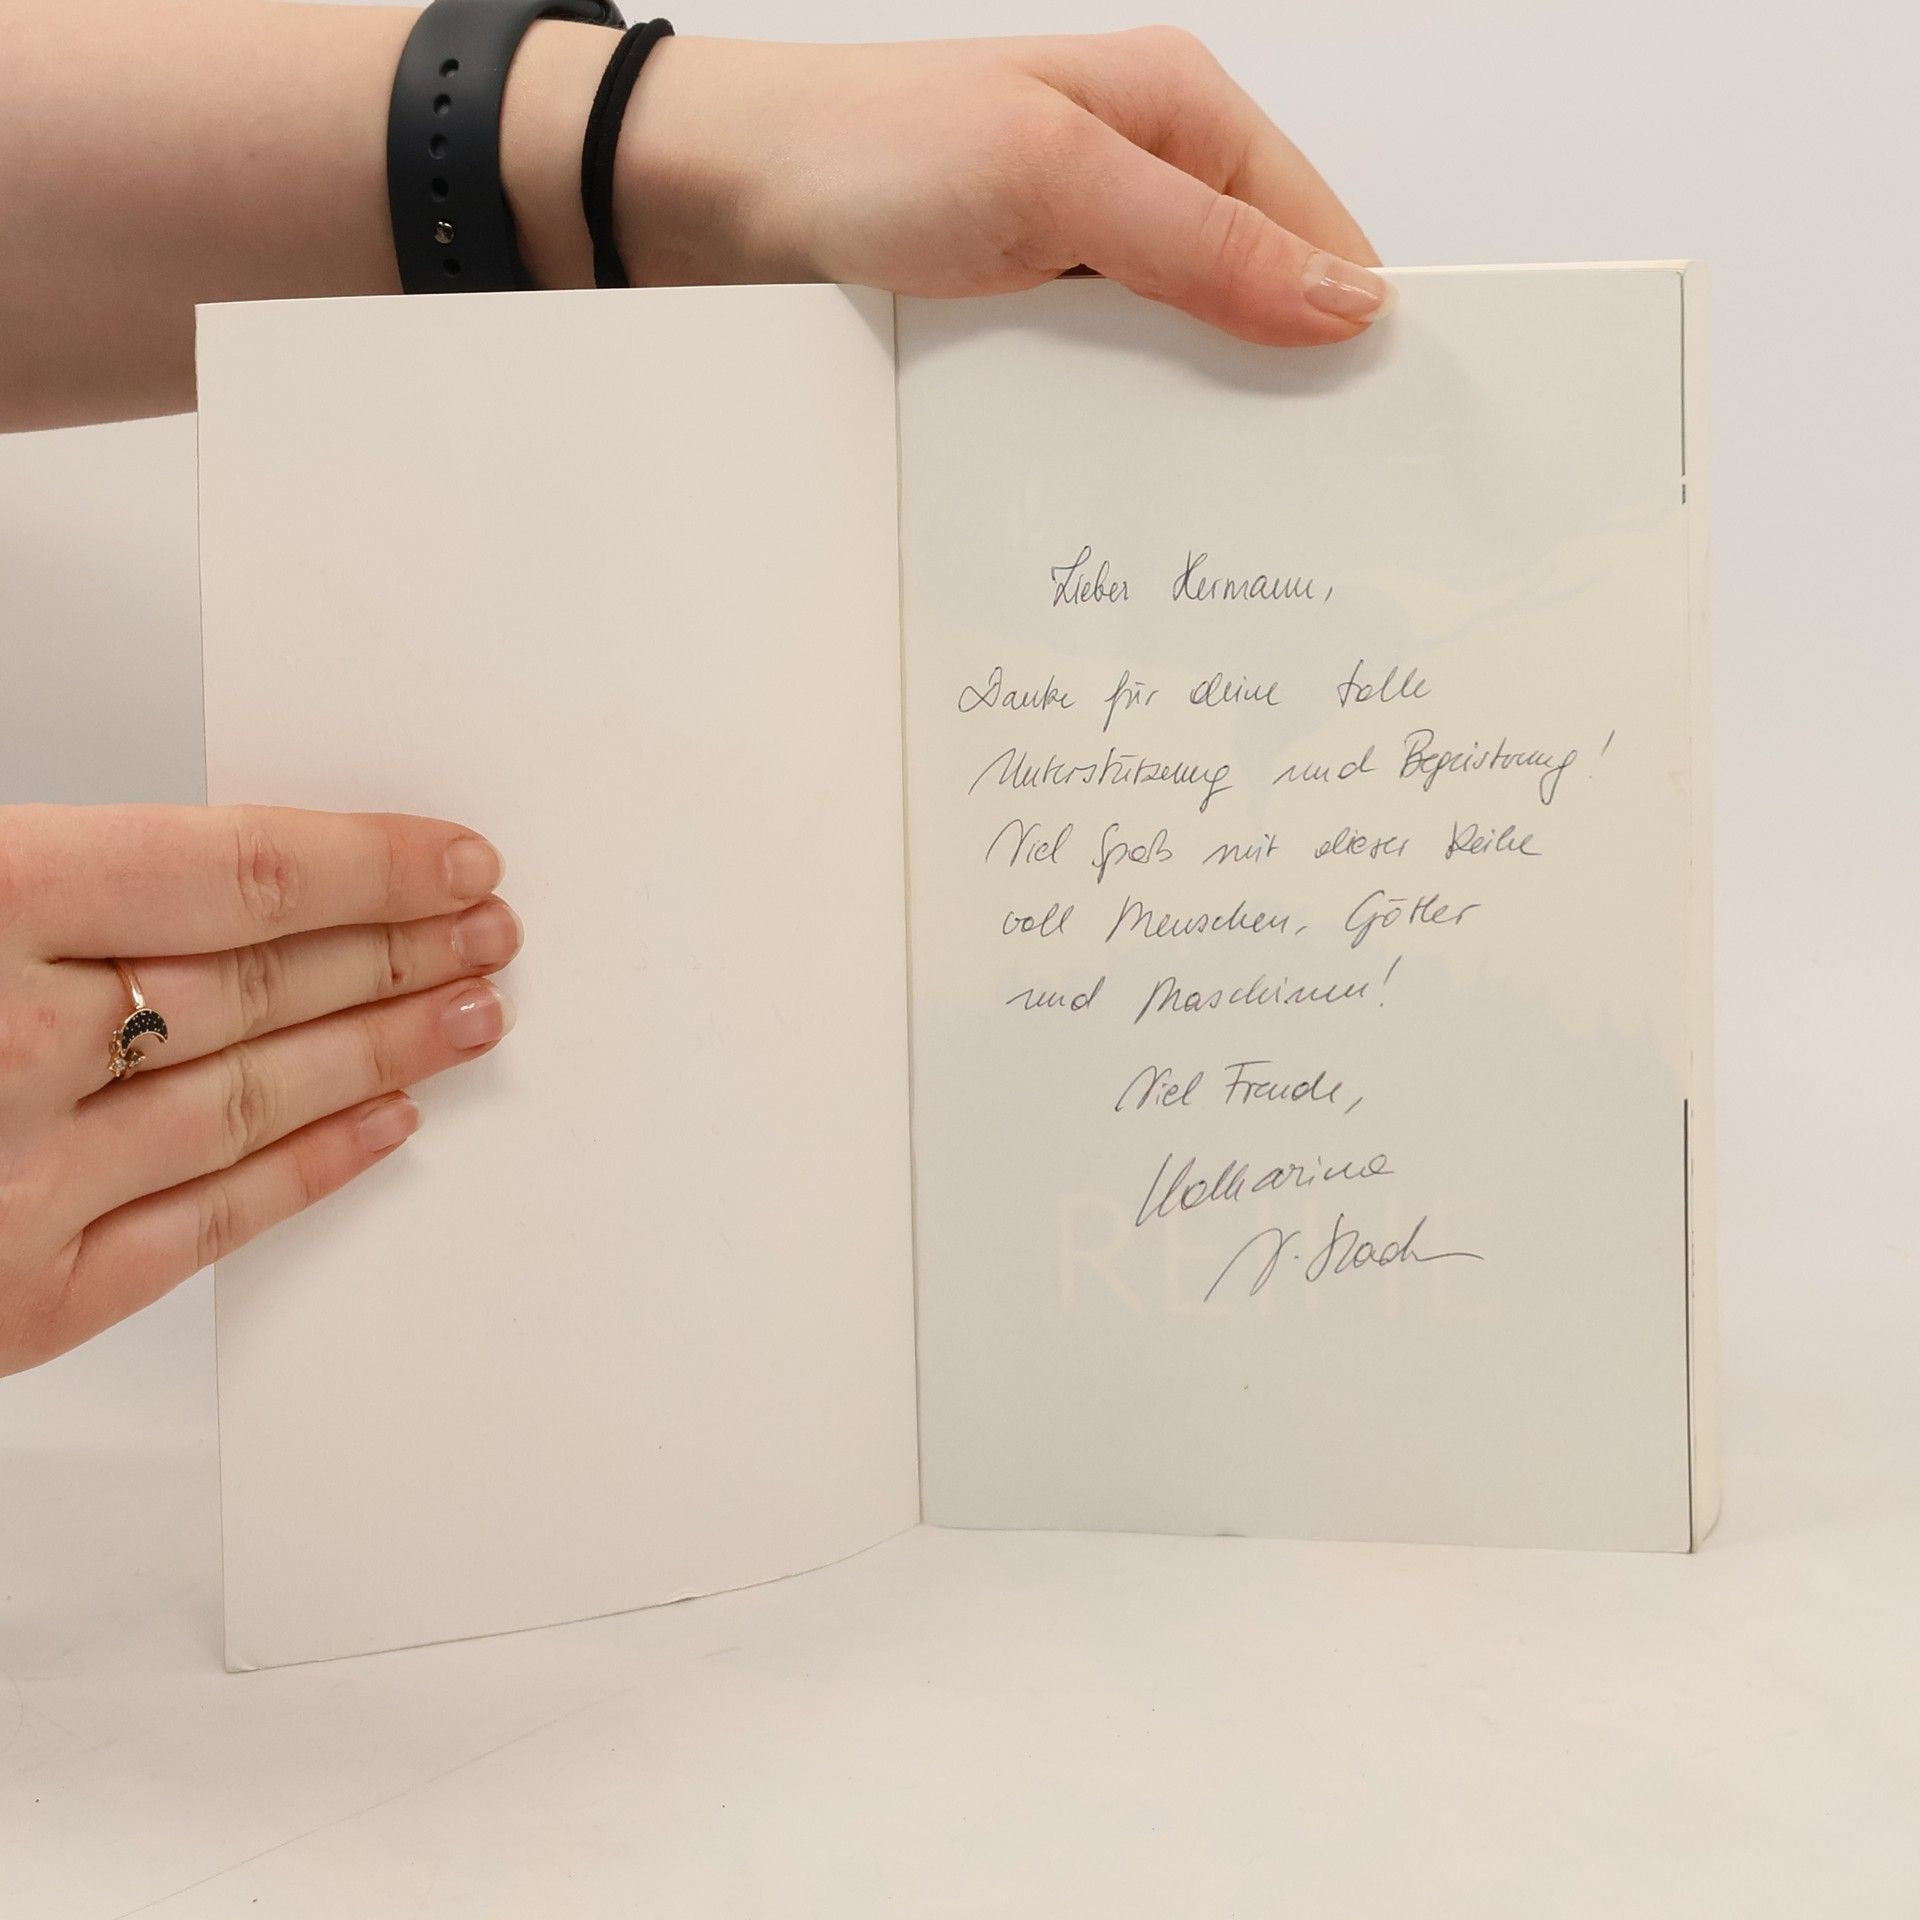 Lieber Hermann,
Danke für deine tolle
Unterstützung und Begeisterung!
Viel Spaß mit dieser Reihe
voll Menschen, Götter
und Maschinen!
Viel Freude,
Katharina
V. Haderer
REIHE